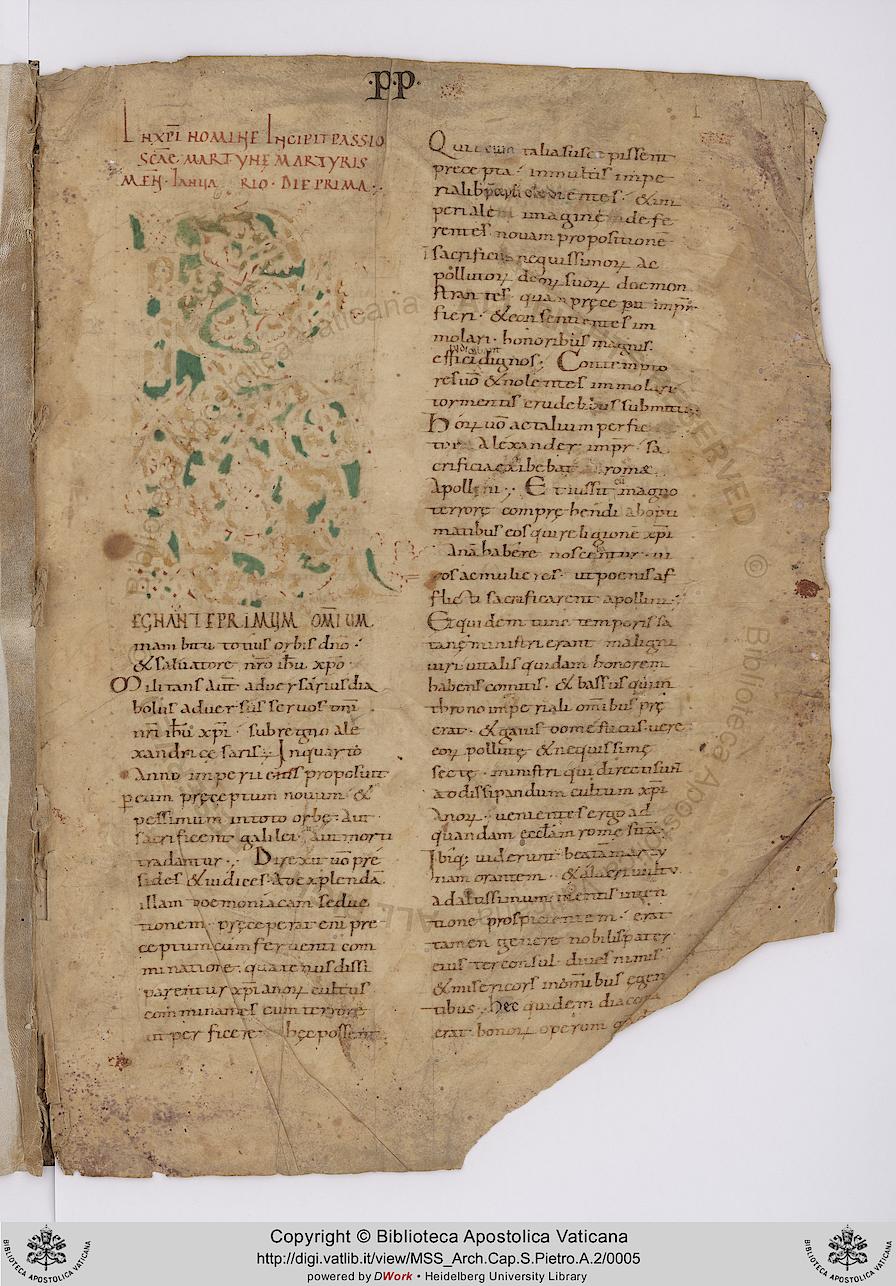 ·P·P·
IN XPI NOMINE INCIPIT PASSIO
SCAE MARTYNE MARTYRIS
MEN̄· IANUA RIO· DIE PRIMA·
EGNANTE PRIMUM OM̄IUM
inam bitu totius orbis dn̄o·
& saluatore nr̄o ihū xpō·
Militans aut̄ aduersarius dia
bolus aduersus seruos dn̄i
nr̄i ihū xpī· subregno ale
xandri cesaris; Inquarto
Anno imperii eius proposuit
pęceptum nouum &
pessimum intoto orbę· Aut
sacrificent galilei· aut morti
tradantur·; Direxit uō pre
sides & iudices· Adexplendā
illam doemoniacam seduc
tionem· pręceperat eni pre
ceptum cum feruenti com
minatione· quatenus dissi
parentur xp̄ianoꝝ cultus
comminantes cum terrore
ut perficere hęc possent·
Qui cum talia suscepissent
precepta· inmultis impe
rialib; & im
perialem imaginē defe
rentes· nouam propositionē
sacrificiis nequissimoꝝ ac
pollutoꝝ deoꝝ suoꝝ doemon
strantes· quam pręcepit impr̄
fieri· & consentientes im
molari· honoribus magnis
effici dignos; Contempto
res uō & nolentes immolari
tormentis crudelibus submitti;
Hoꝝ uō ac talium perfic
tur· Alexander impr̄· sa
crificia exibebat romae
Apollini·; Et iussit cū magno
terrorę comprehendi ab omni
matibus eos qui religionē xpī
Anā habere noscentur· ui
ros ac mulieres· ut poenis af
flicti sacrificarent apollini;
Et quidem tunc temporis sa
tanę ministri erant maligni
uiri uitalis quidam honorem
habens comitis· & bassus qui in
throno imperiali om̄ibus prę
erat· & gaius domesticus uere
eoꝝ pollutę & nequissimę
sectę· ministri qui directi sun̄
ad dissipandum cultum xpī
Anoꝝ· uenientes ergo ad
quandam eccl̄am rome sitā·
Ibiq; uiderunt beatā marty
nam orantem· & alacri uultu
ad altissimum mentis inten
tione prospicientem· erat
tamen genere nobilis pater
eius ter consul· diues nimis
& misericors in om̄ibus egen
tibus· hęc quidem diacon
erat· bonoꝝ operum
Copyright © Biblioteca Apostolica Vaticana
http://digi.vatlib.it/view/MSS_Arch.Cap.S.Pietro.A.2/0005
powered by DWork • Heidelberg University Library
BIBLIOTECA APOSTOLICA VATICANA
BIBLIOTECA APOSTOLICA VATICANA